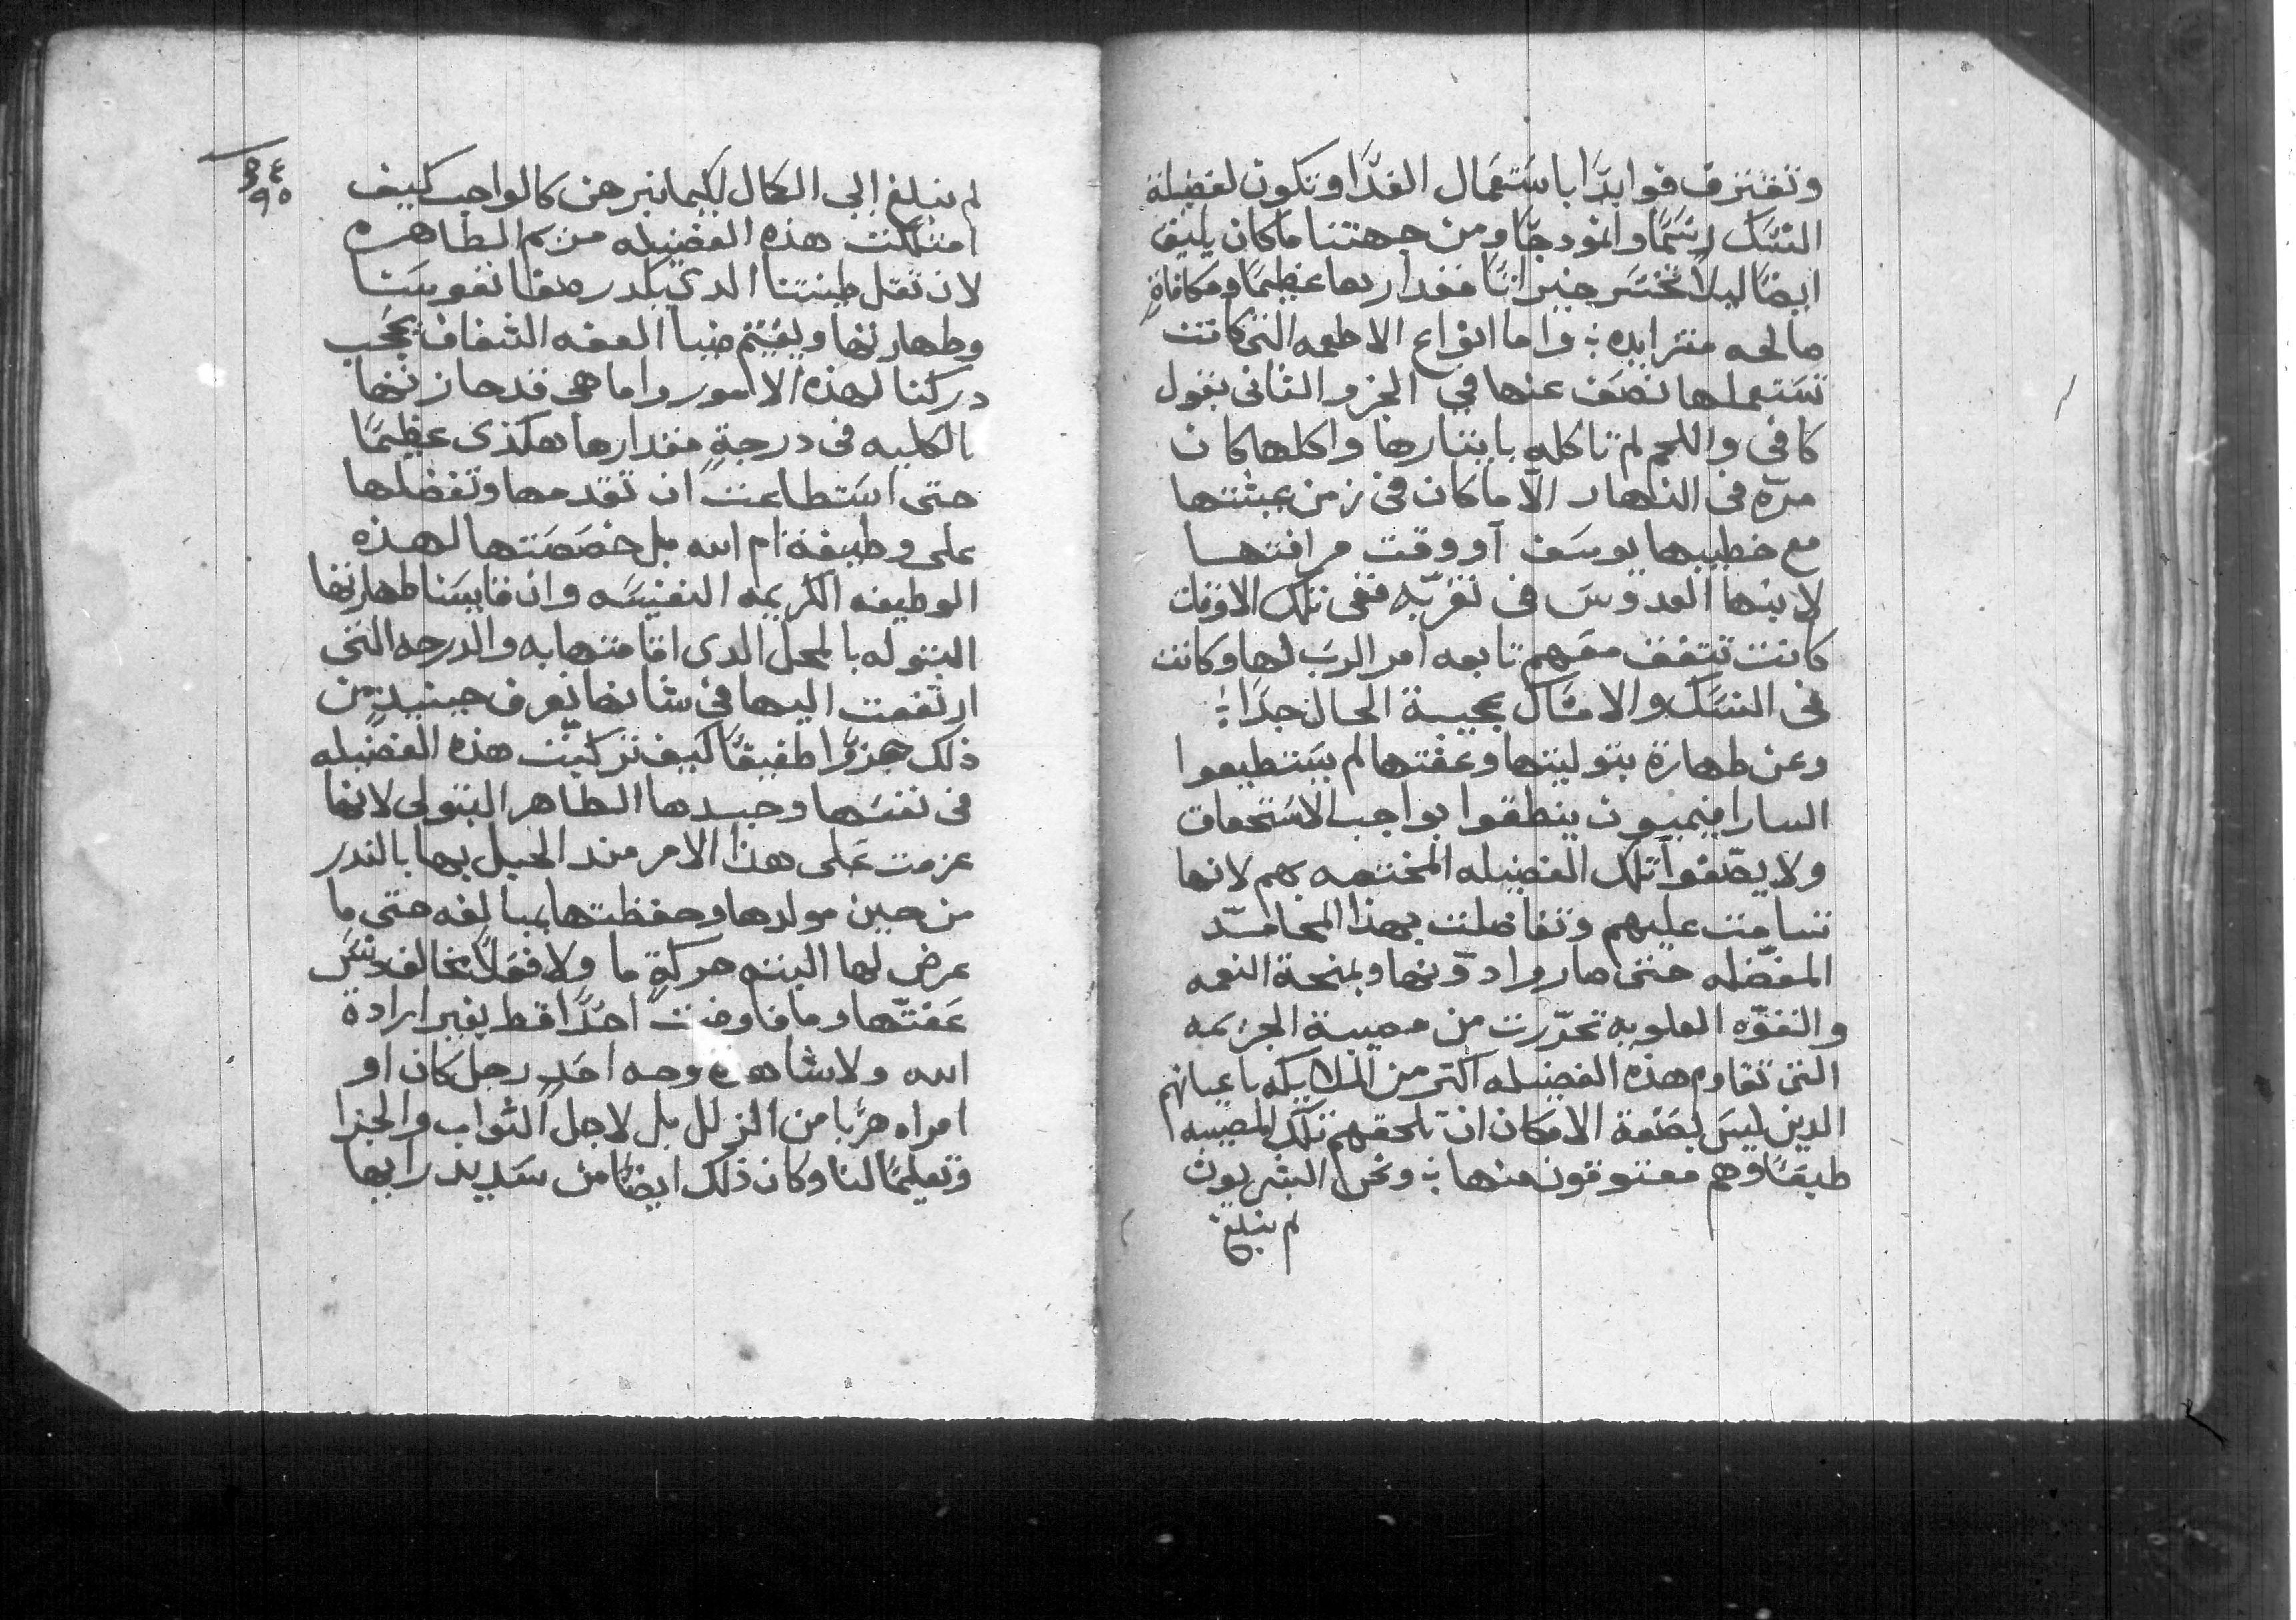 وتقترف فوايدًا باستعمال الغدًا وتكون لفضيلة
النسك رسمًا وانمودجًا ومن جهتنا ماكان يليق
ايضًا ليلا نخسر خيراتًا مقدارها عظيمًا ومكافاةٍ
صالحه متزايده ؛ واما انواع الاطعمه التى كانت
تستعملها نصف عنها في الجزو الثانى بقول
كافي واللحم لم تاكله بايتارها واكلها كان
مرّه فى النهار الّا ماكان فى زمن عيشتها
مع خطيبها يوسف او وقت مرافقتها
لابنها القدوس فى تغرّبه ففى تلك الاوقات
كانت تتفق معهم تابعه امر الرب لها وكانت
فى النسك والامساك عجيبة الحال جدًا ؛
وعن طهارة بتوليتها وعفتها لم يستطيعوا
السارافيميون ينطقوا بواجب الاستحقاق
ولا يصّفوا تلك الفضيله المختصه بهم لانها
تسامت عليهم وتفاضلت بهذا المحامد
المفضّله حتى صاروا دوّنها وبمنحة النعمه
والقوّه العلويه تحرّرت من مصيبة الجزيمه
التى تقاوم هذه الفضيله اكتر من الملايكه باعيانهم
الدين ليس بصفة الامكان ان تلحقهم تلك المصيبه
طبعًا وهم معتوقون منها ؛ ونحن البشريون
لم نبلغ
٣٤
٩٥
لم نبلغ الي الكمال لكيما نبرهن كالواجب كيف
امتلكت هذه الفضيله مريم الطاهره
لان تقل طينتنا الدي يكدر صفا نفوسنا
وطهارتها ويقتم ضيا العفه الشفاف يحجب
دركنا لهذه الامور واما هى قد حازتها
بالكليه فى درجةٍ مقدارها هكذى عظيمًا
حتى استطاعت ان تقدمها وتفضلها
على وظيفة ام الله بل خصصتها لهذه
الوظيفه الكريمه النفيسه وان قايسنا طهارتها
البتوله بالمحل الدى اقامتها به والدرجه التى
ارتفعت اليها فى شانها نعرف حينيدٍ من
ذلك جزوًا طفيفًا كيف تزكيّت هذه الفضيله
فى نفسها وجسدها الطاهر البتولى لانها
عزمت على هذا الامر مند الحبل بها بالندر
من حين مولدها وحفظتها بمبالغه حتى ما
عرض لها البته حركةٍ ما ولا فعلًا يخالف دنس
عفتّها وما فاوضت احدًا قط بغير ارادة
الله ولا شاهدة وجه احدٍ رجل كان او
امراه هربا من الزلل بل لاجل الثواب والجزا
وتعليمًا لنا وكان ذلك ايضًا من سديد رايها